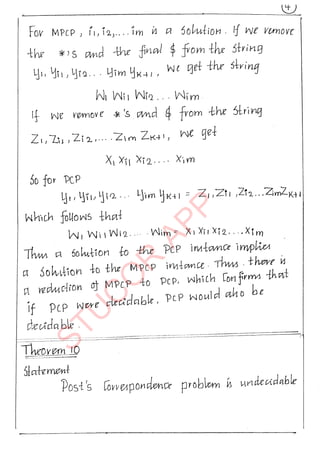 4
For MPCP, i1, i2,.... im is a Solution. If we remove
the *'s and the final $ from the String
y1, yi1, yi2... yim yk+1, we get the string
W1 Wi1 Wi2... Wim
If we remove *'s and $ from the String
Z1, Zi1, Zi2,....Zim Zk+1, we get
X1 Xi1 Xi2.... Xim
So for PCP
y1, yi1, yi2... yim yk+1 = Z1, Zi1, Zi2...Zim Zk+1
Which follows that
W1 Wi1 Wi2.... Wim = X1 Xi1 Xi2....Xim
Thus a Solution to the PCP instance implies
a Solution to the MPCP instance. Thus there is
a reduction of MPCP to PCP. Which Confirms that
if PCP were decidable, PCP would also be
decidable.
Theorem 10
Statement
Post's Correspondence problem is undecidable
STUCOR APP